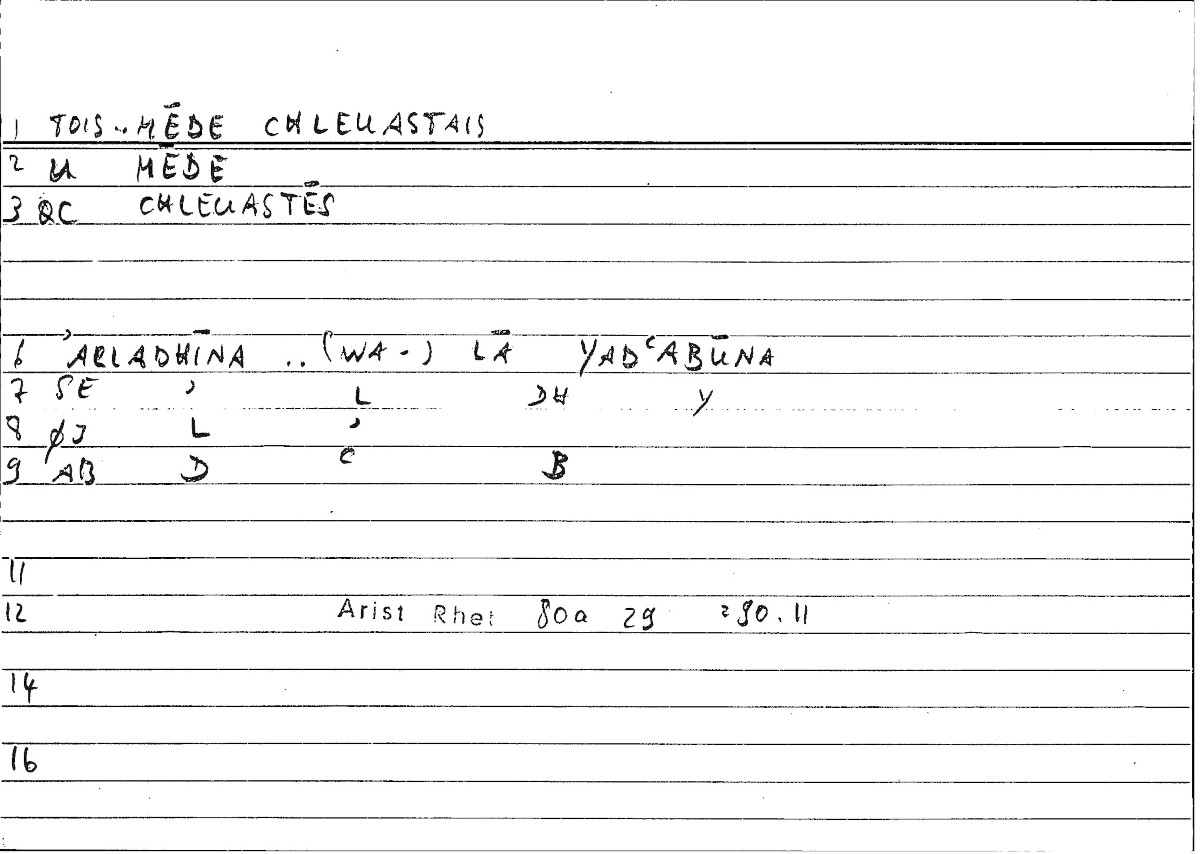 1 TOIS .. MĒDE CHLEUASTAIS
2 U MĒDE
3 QC CHLEUASTĒS
6 'ALLADHĪNA .. (WA-) LĀ YADʿABŪNA
7 SE ' L DH Y
8 ØJ L '
9 AB D ʿ B
11
12 Arist Rhet 80a 29
14
16